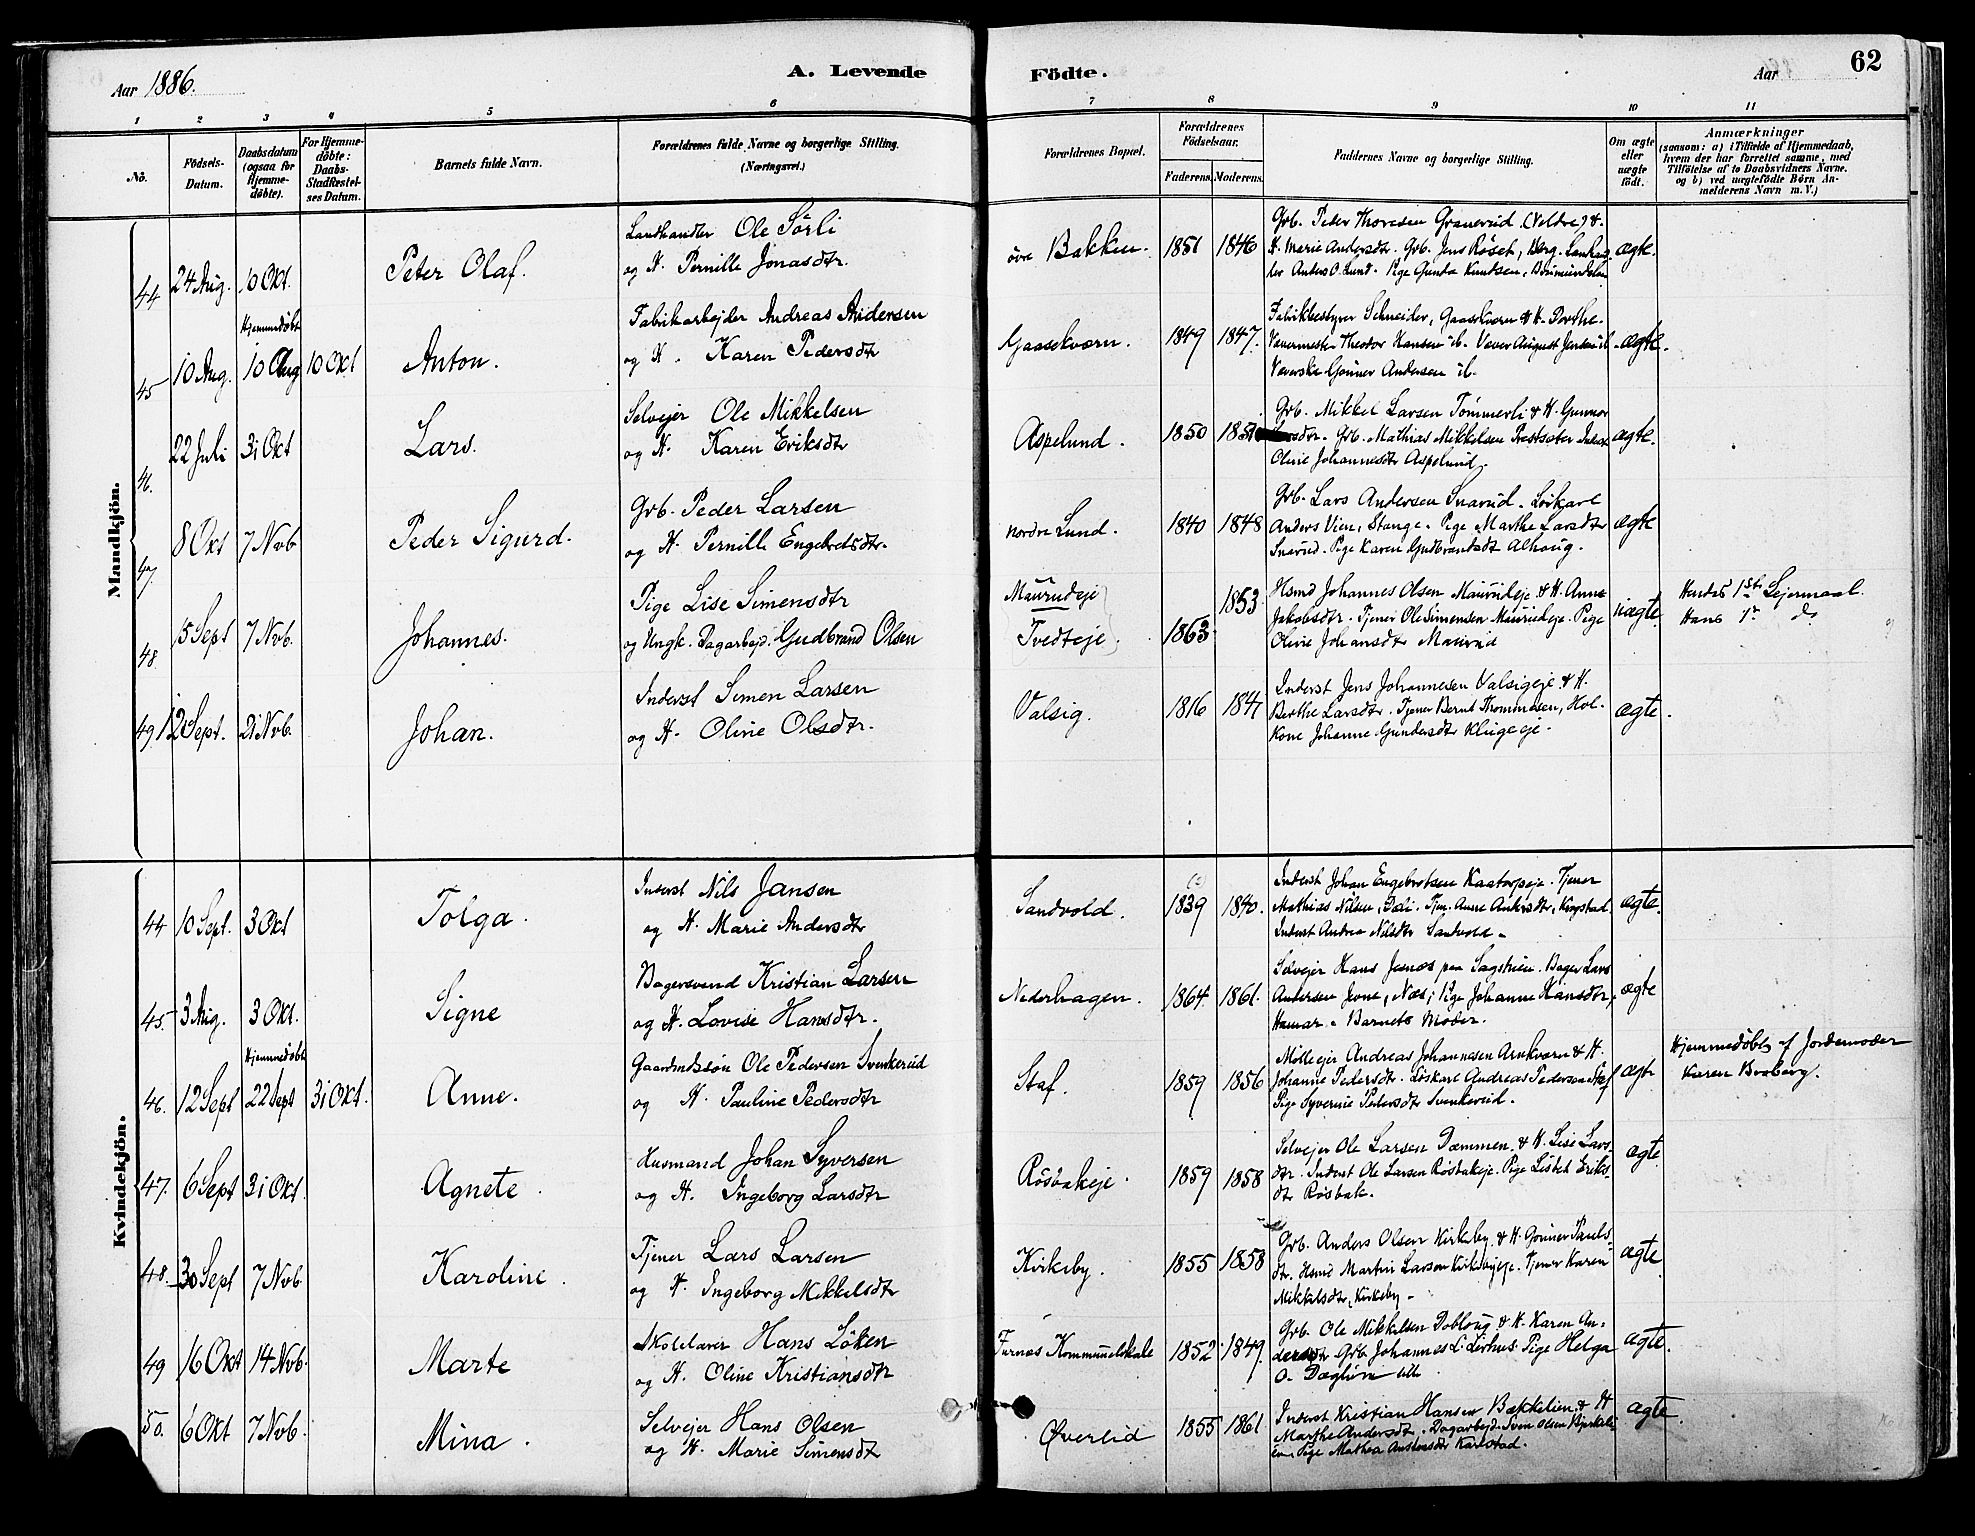 Aar 1886.
A. Levende
Födte.
Aar
62
1 2 3 4 5 6 7 8 9 10 11
No.
Födsels-Datum.
Daabsdatum (ogsaa for Hjemmedöbte).
For Hjemmedöbte: Daabs-Stadfæstelses Datum.
Barnets fulde Navn.
Forældrenes fulde Navne og borgerlige Stilling.
(Næringsvei.)
Forældrenes Bopæl.
Forældrenes Födselsaar.
Faderens. Moderens.
Faddernes Navne og borgerlige Stilling.
Om ægte eller uægte födt.
Anmærkninger
(saasom: a) i Tilfælde af Hjemmedaab, hvem der har forrettet samme, med Tilföielse af to Daabsvidners Navne. og b) ved uægtefödte Börn Anmelderens Navn m. V.)
Mandkjön.
44 24 Aug. 10 Okt. Peter Olaf.
Landhandler Ole Sörli
og H. Pernille Jonasdtr.
övre Bakken. 1851 1846
Grb. Peder Thoresen Granerud (Veldre) & H. Marie Andersdtr. Grb. Jens Röset, Berg. Landhandler Anders O. Lund. Pige Gunda Knutsen, Brumunddalen
ægte.
45 10 Aug. Hjemmedöbt 10 Aug 10 Okt Anton.
Fabrikarbejder Andreas Andersen
og H. Karen Pedersdtr
Gaasekværn. 1849 1847.
Fabrikbestyrer Schneider, Gaasekværn & H. Dorthe.
Vævermester Theodor Hansen ib. Væver August Jensen ib.
Væverske Gunner Andersen ib.
ægte.
46. 22 Juli 31 Okt Lars.
Selvejer Ole Mikkelsen
og H. Karen Eriksdtr
Aspelund. 1850 1851
Grb. Mikkel Larsen Tömmerli & H. Gunnor
Grb. Mathias Mikkelsen Prestsæter Inderst
Oline Johannesdtr Aspelund.
ægte.
47. 8 Okt 7 Nvb Peder Sigurd.
Grb. Peder Larsen
og H. Pernille Engebretsdtr.
nordre Lund. 1840 1848
Grb. Lars Andersen Snarud. Löskarl
Anders Vien, Stange. Pige Marthe Larsdtr
Snarud. Pige Karen Gudbrandsdt Alhoug.
ægte
48. 5 Sept 7 Nvb. Johannes.
Pige Lise Simensdtr
og Ungk. Dagarbejd. Gudbrand Olsen
Maurudeje
Tvedteje
1863 1853
Hsmd Johannes Olsen Maurudeje & H. Anne
Jakobsdtr. Tjener Ole Simensen Maurudeje. Pige
Oline Johansdtr Maurud
uægte
Hendes 1ste Lejermaal.
Hans 1te do
49. 12 Sept. 21 Nvb. Johan.
Inderst Simen Larsen
og H. Oline Olsdtr.
Valsig. 1816 1841
Inderst Jens Johannesen Valsigeje & H.
Berthe Larsdtr. Tjener Bernt Thommesen, Hol-
Kone Johanne Gundersdtr Klugeje.
ægte.
Kvindekjön.
44 10 Sept. 3 Okt Tolga.
Inderst Nils Jansen
og H. Marie Andersdtr
Sandvold. 1839 1840.
Inderst Johan Engebretsen Kaatorpeje. Tjener
Mathias Nilsen, Dæli. Tjen. Anne Andersdtr, Krystad.
Inderst Andrea Nilsdtr Sandvold.
ægte.
45. 3 Aug. 3 Okt. Signe
Bagersvend Kristian Larsen
og H. Lovise Hansdtr.
Nederhagen. 1864 1861.
Selvejer Hans Jesnes paa Sagstuen. Bager Lars
Andersen Jevne, Næs; Pige Johanne Hansdtr,
Hamar. Barnets Moder.
ægte
46. 12 Sept Hjemmedöbt 22 Sept 31 Okt. Anne.
Gaardmdssön Ole Pedersen Svenkerud
og H. Pauline Pedersdtr
Staf. 1859 1856
Mölleejer Andreas Johannesen Arnkværn & H.
Johanne Pedersdtr. Löskarl Andreas Pedersen Staf
Pige Syverine Pedersdtr Svenkerud.
ægte
Hjemmedöbt af Jordemoder
Karen Broberg.
47. 6 Sept 31 Okt. Agnete.
Husmand Johan Syversen
og H. Ingeborg Larsdtr
Rösbakeje. 1859 1858
Selvejer Ole Larsen Dæmmen & H. Lise Lars-
dtr. Inderst Ole Larsen Rösbakeje. Pige Lisbet Eriks-
dtr Rösbak.
ægte
48. 30 Sept 7 Nvb. Karoline.
Tjener Lars Larsen
og H. Ingeborg Mikkelsdtr
Kirkeby. 1855 1858
Grb. Anders Olsen Kirkeby & H. Gunner Pauls-
dtr. Hsmd Martin Larsen Kirkebyeje. Tjener Karen
Mikkelsdtr, Kirkeby.
ægte
49 16 Okt 14 Nvb. Marte
Skolelærer Hans Löken
og H. Oline Kristiansdtr
Furnes Kommunelokale 1852 1849.
Grb. Ole Mikkelsen Dobloug & H. Karen An-
dersdtr Grb. Johannes L. Lirhus. Pige Helga
O.
ægte.
50. 6 Okt 7 Nvb. Mina.
Selvejer Hans Olsen
og H. Marie Simensdtr
Överlid 1855 1861
Inderst Kristian Hansen Bækkelien & H
Marthe Andersdtr. Dagarbejd. Sven Olsen Bjerkeli-
en, Pige Mathea Andersdtr Karlstad.
ægte.